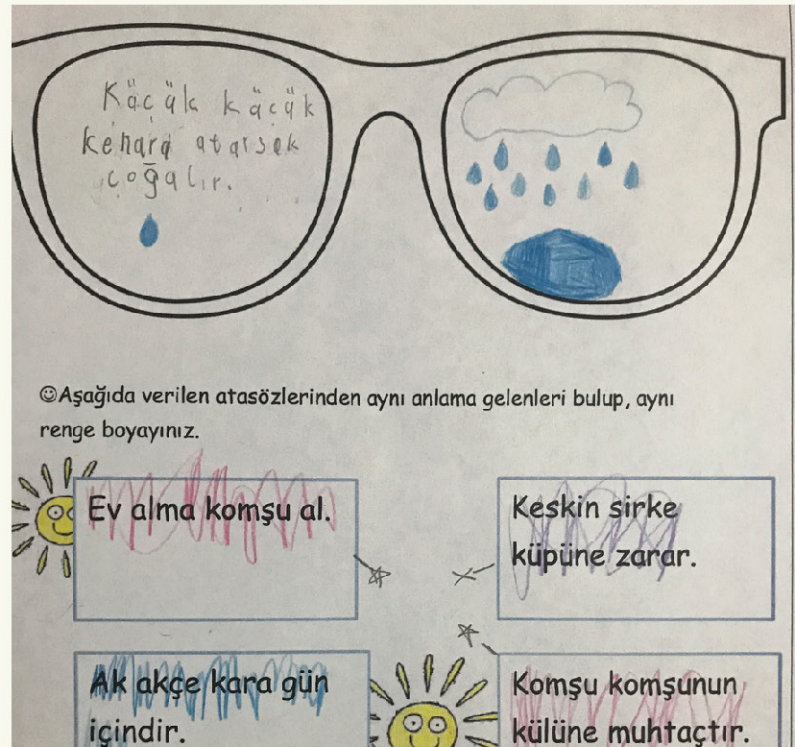 Küçük küçük
kenara atarsak
çoğalır.
☺Aşağıda verilen atasözlerinden aynı anlama gelenleri bulup, aynı
renge boyayınız.
Ev alma komşu al.
Keskin sirke
küpüne zarar.
Ak akçe kara gün
içindir.
Komşu komşunun
külüne muhtaçtır.